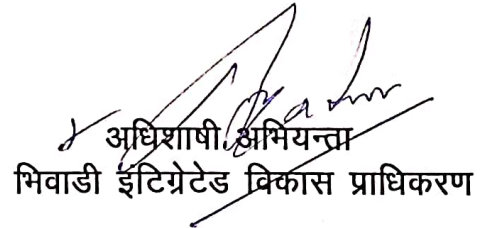 अधिशाषी अभियन्ता
भिवाडी इंटिग्रेटेड विकास प्राधिकरण